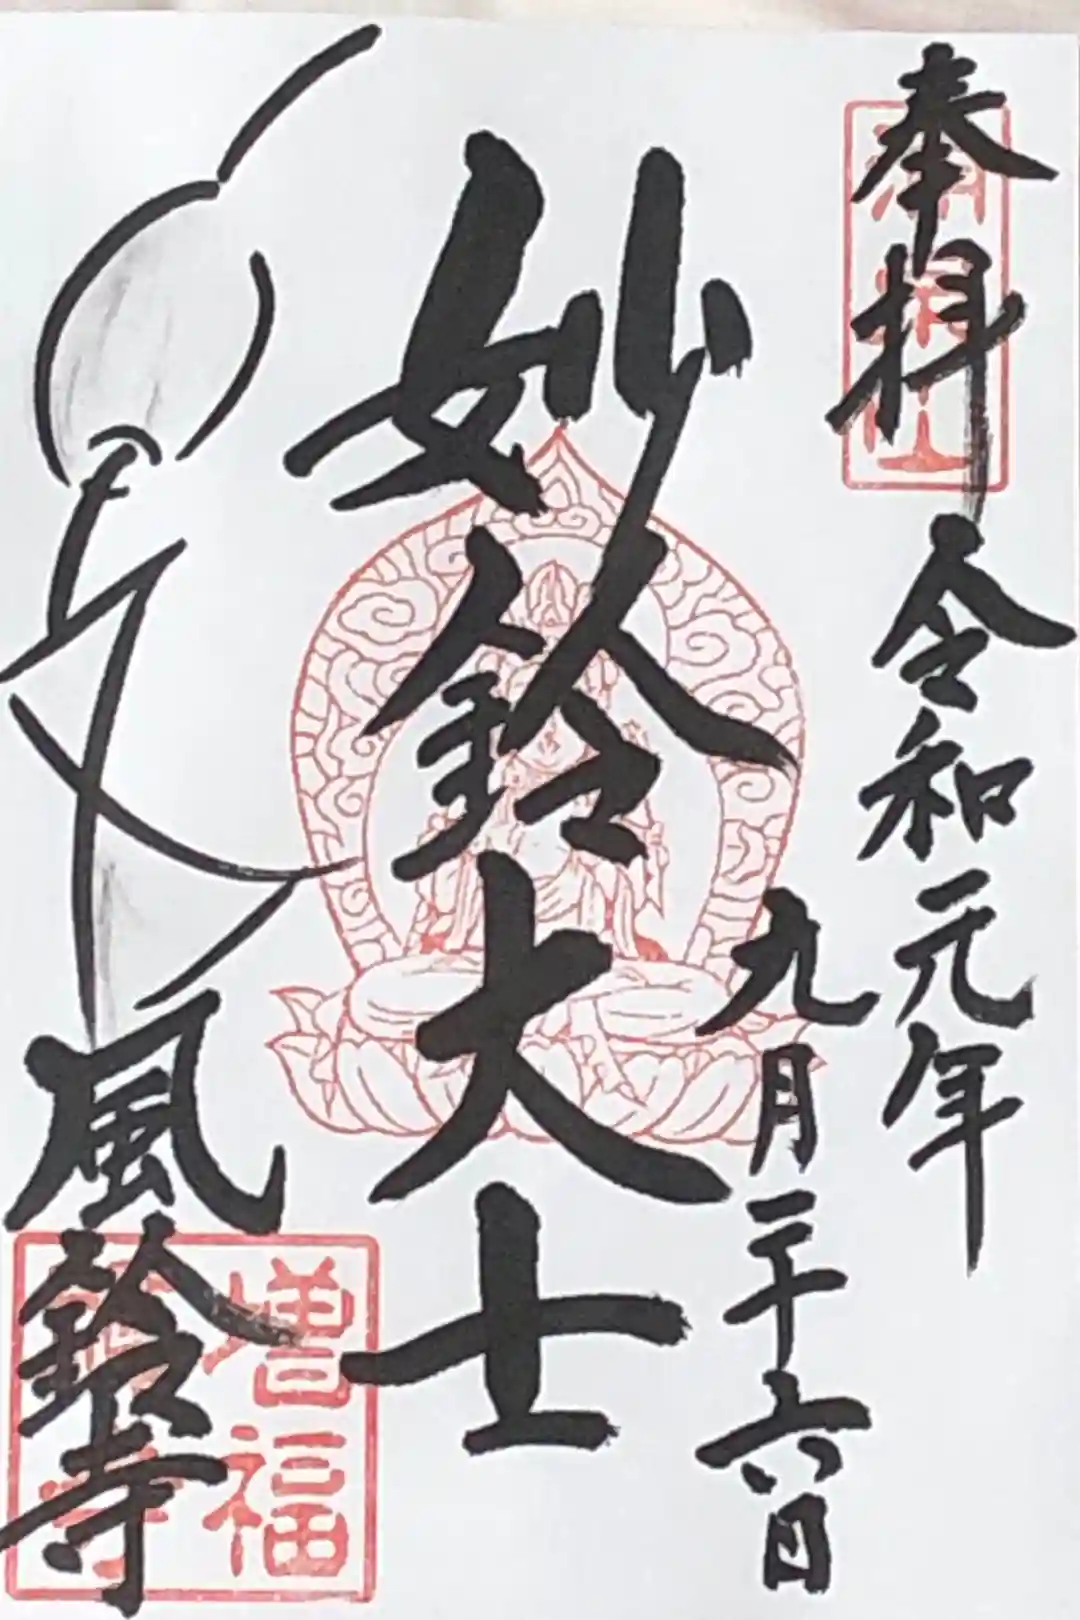 奉拝
令和元年
九月二十六日
妙鈴大士
風鈴寺
増福